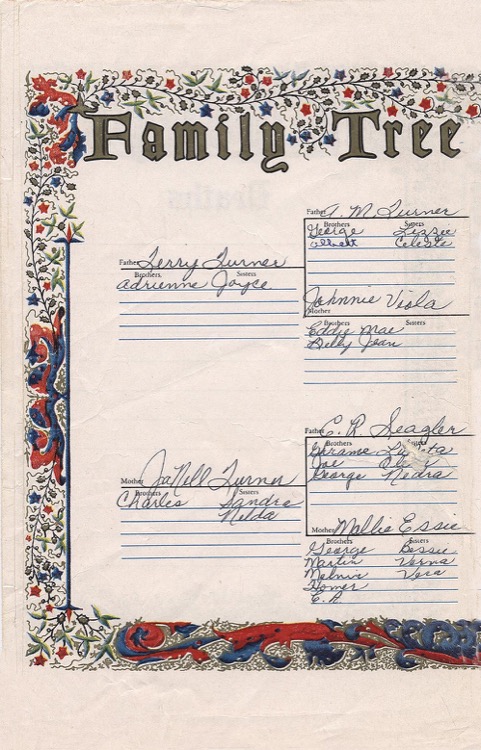 Family Tree
Father A. M. Turner
Brothers Sisters
George Lizzie
Albert Celeste
Father Terry Turner
Brothers Sisters
Adrienne Joyce
Johnnie Viola
Mother
Brothers Sisters
Eddie Mae
Billy Jean
Father E. R. Seagler
Brothers Sisters
Joe
George Nedra
Mother JaNell Turner
Brothers Sisters
Charles Sandra
Nelda
Mother Mollie Essie
Brothers Sisters
George Bessie
Martin Verna
Melvin Vera
Homer
E. R.